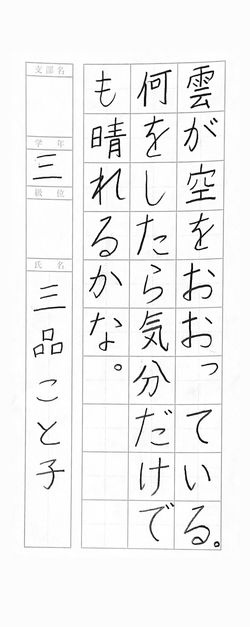 雲が空をおおっている。
何をしたら気分だけで
も晴れるかな。
支部名
学年
三
級位
氏名
三品こと子